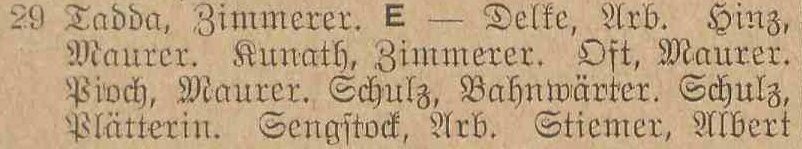 29 Tadda, Zimmerer. E — Delke, Arb. Hinz,
Maurer. Kunath, Zimmerer. Ost, Maurer.
Pioch, Maurer. Schulz, Bahnwärter. Schulz,
Plätterin. Sengstock, Arb. Stiemer, Albert